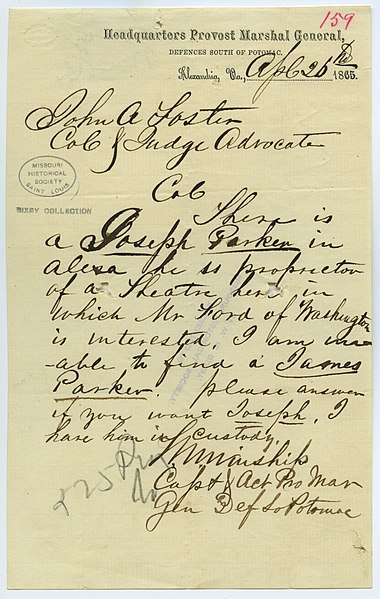 159
Headquarters Provost Marshal General,
DEFENCES SOUTH OF POTOMAC.
Alexandria, Va., Apl 26th 1865.
John A Foster
Col & Judge Advocate
MISSOURI
HISTORICAL
SOCIETY
SAINT LOUIS
BIXBY COLLECTION
Col
There is
a Joseph Parker in
alexa he is proprietor
of a Theatre here in
which Mr Ford of Washington
is interested. I am un
-able to find a James
Parker. please answer
if you want Joseph, I
have him in custody
Winship
Capt & Act Pro Mar
Gen Def So Potomac